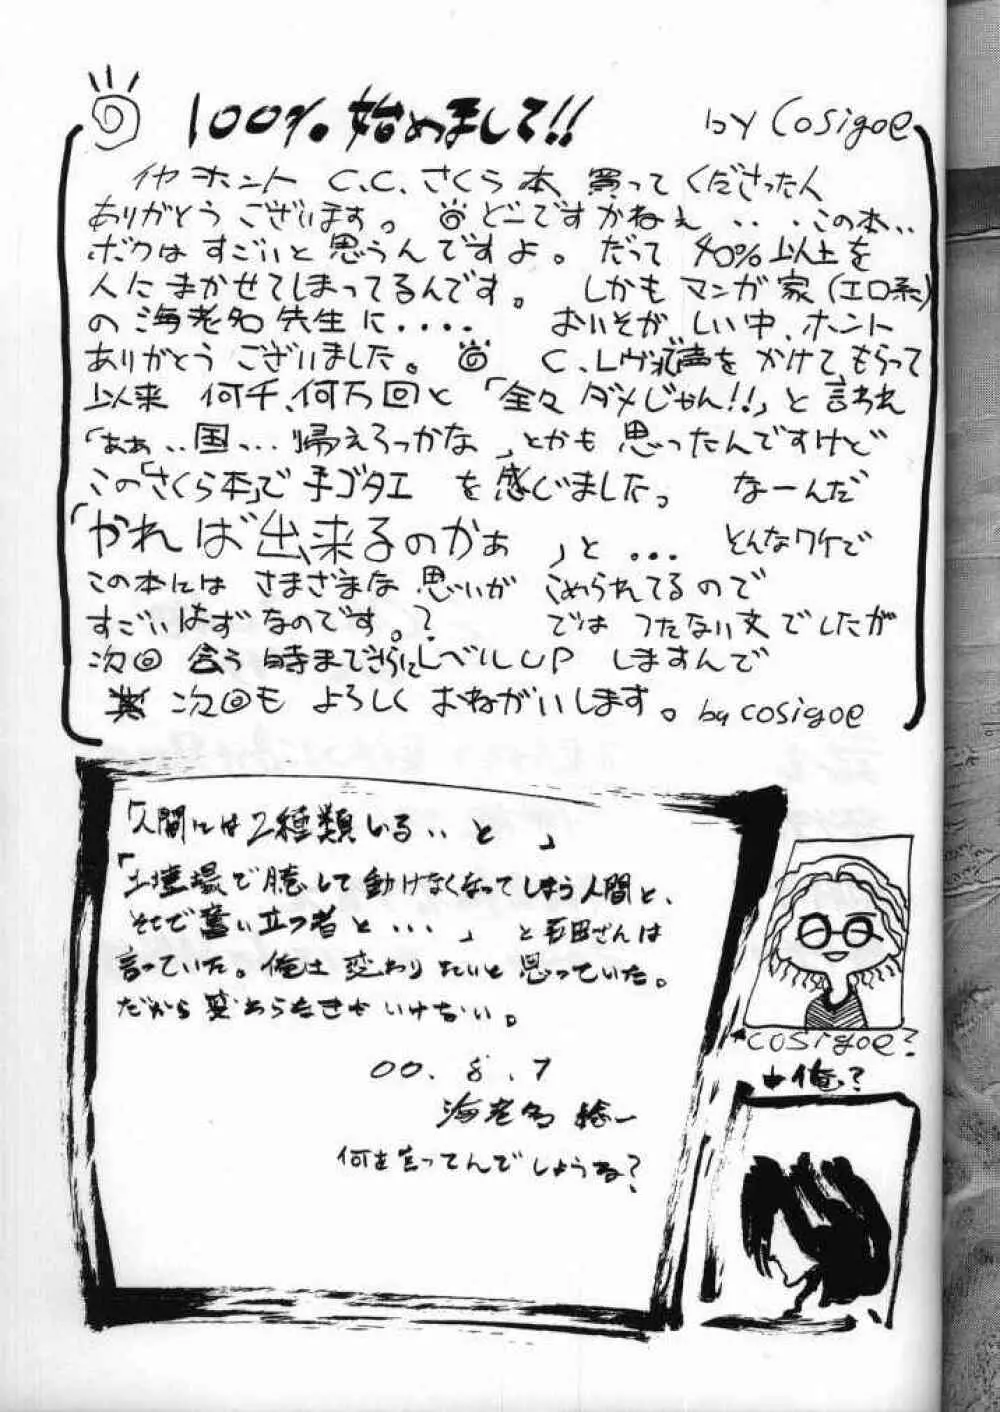 100%始めまして!!
by Cosigoe
イヤホント C.C.さくら本、買ってくださった人
ありがとうございます。 どーですかねぇ...この本..
ボクはすごいと思うんですよ。だって40%以上を
人にまかせてしまってるんです。しかもマンガ家(エロ系)
の海老名先生に.... おいそがしい中、ホント
ありがとうございました。 C.レヴォで声をかけてもらって
以来 何千、何万回と「全々ダメじゃん!!」と言われ
「あぁ..国...帰えろっかな」とかも思ったんですけど
この「さくら本」で手ゴタエを感じましたっ なーんだ
「やれば出来るのかぁ」と... そんなワケで
この本には さまざまな思いが こめられてるので
すごいはずなのです。? では つたない文でしたが
次回 会う時までさらにレベルUP しますんで
次回も よろしく おねがいします。 by cosigoe
「人間には2種類いる..と」
「土壇場で臆して動けなくなってしまう人間と、
そこで奮い立つ者と...」 と さんは
言っていた。俺は変わりたいと思っていた。
だから変わらなきゃいけない。
00.8.7
海老名 一
何を言ってんでしょうね?
cosigoe?
俺?